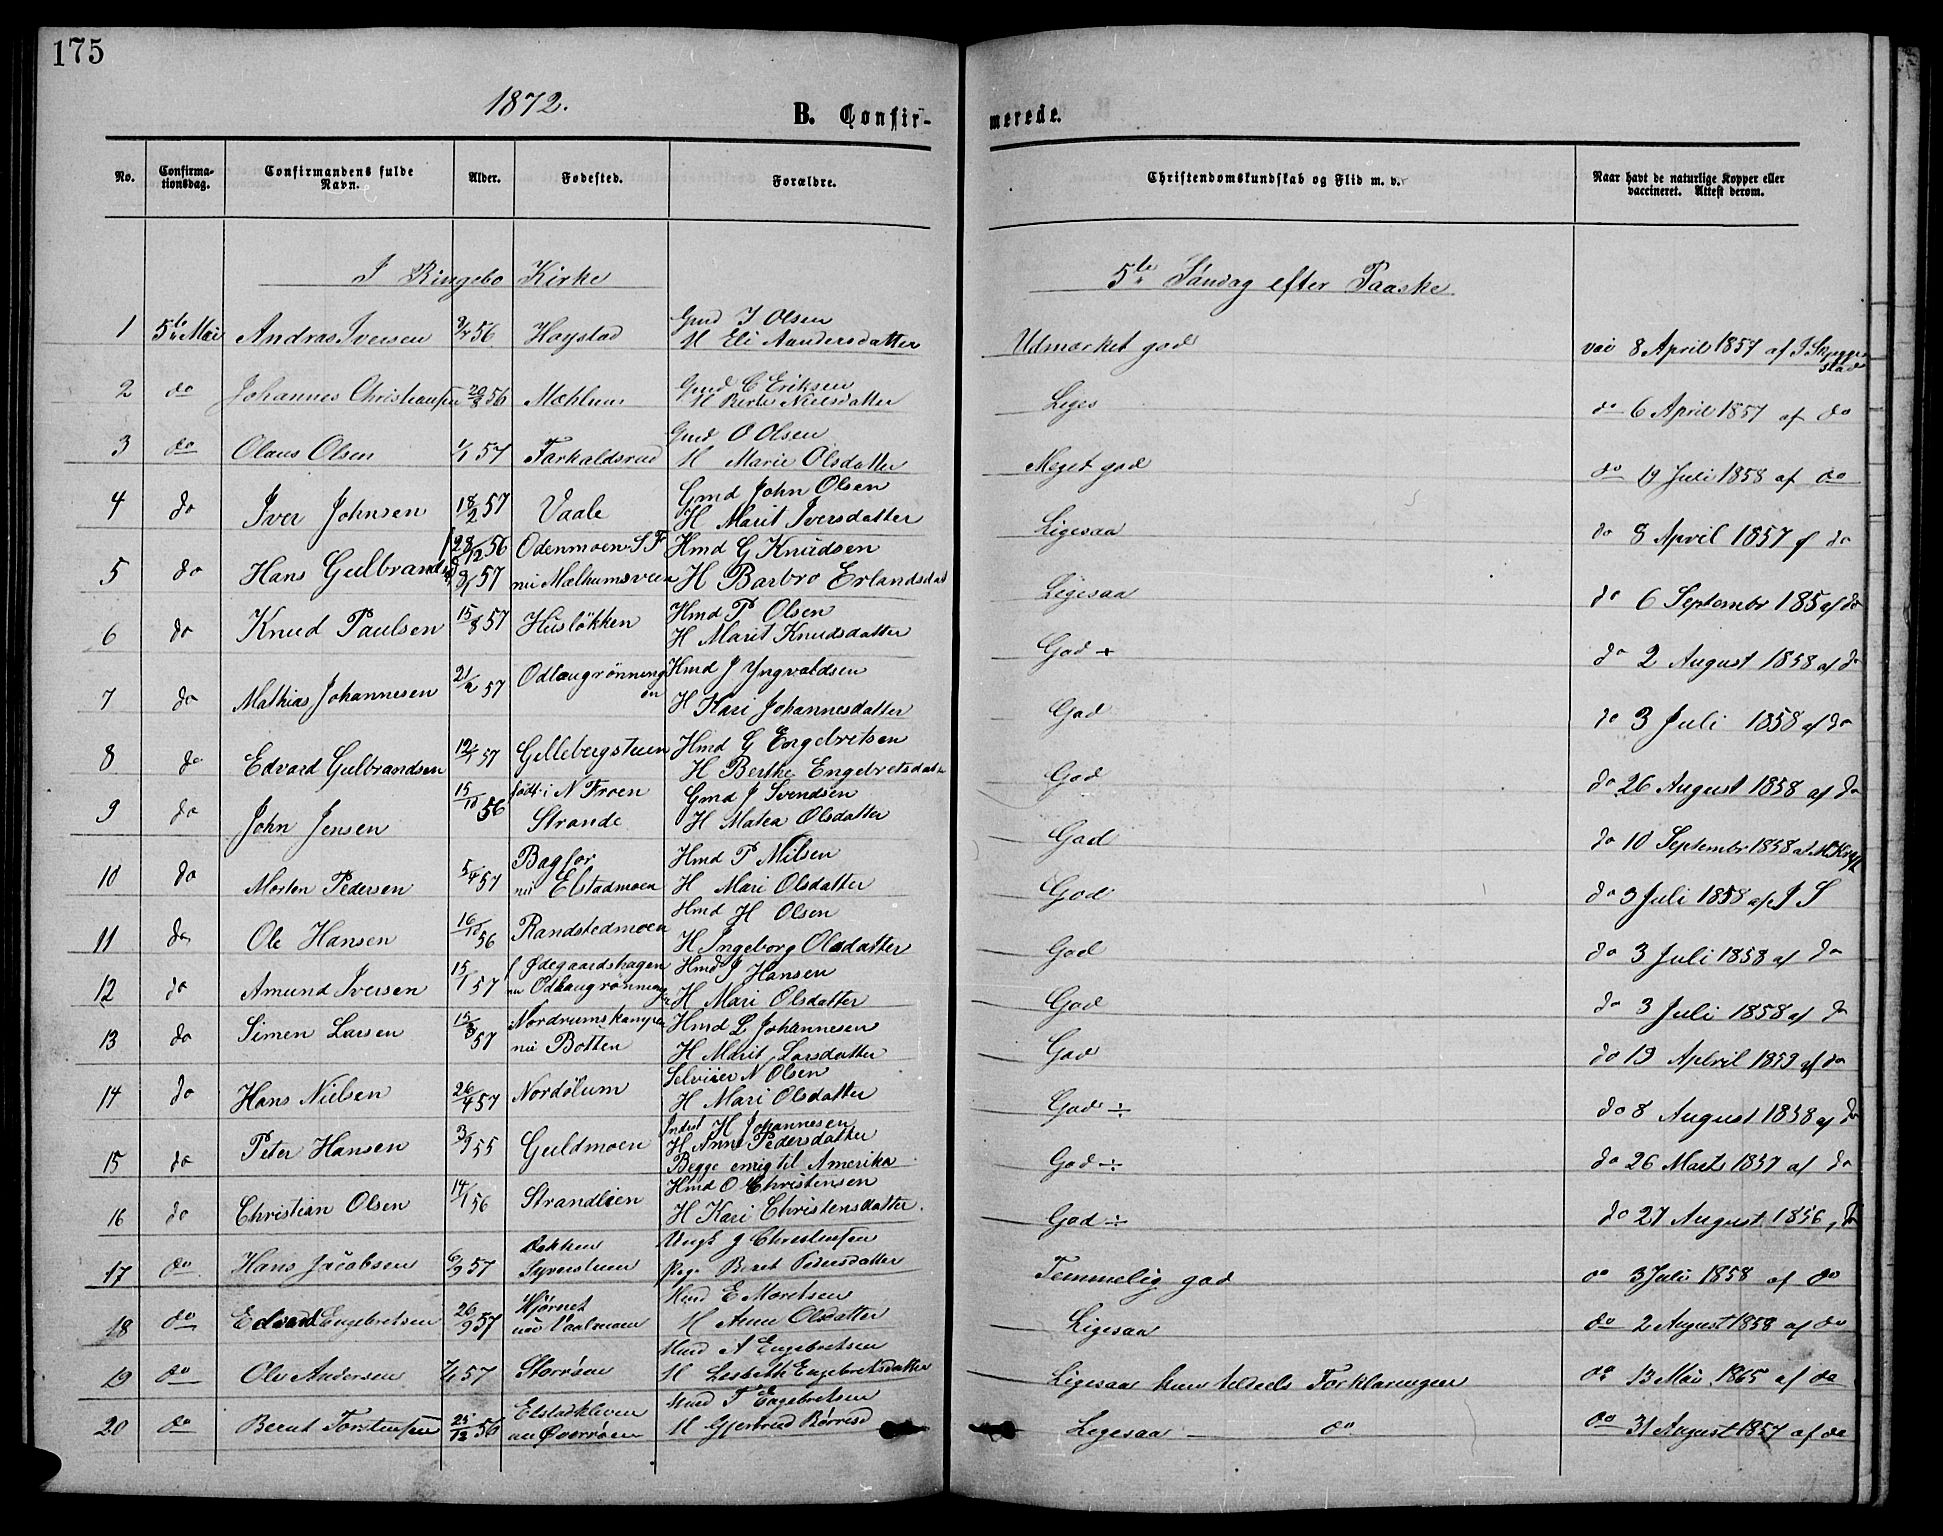 175
1872.
B. Confir-
merede.
No. Confirma-tionsdag. Confirmandens fulde Navn. Alder. Fødested. Forældre. Christendomskundskab og Flid m. v. Naar havt de naturlige Kopper eller vaccineret. Attest derom.
I Ringebo Kirke 5te Søndag efter Paaske
1 5te Mai Andras Iversen 56 Haystad Gmd I Olsen
H Eli Aandersdatter Udmærket god 8 April 1857 af
2 do Johannes Christiansen 56 Mæhlum Gmd C Eriksen
H Berte Nielsdatter Liges do 6 April 1857 af do
3 do Olaus Olsen 1/1 57 Farkaldsrud Gmd O Olsen
H Marie Olsdatter Meget god do 19 Juli 1858 af do
4 do Iver Johnsen 18/2 57 Vaale Gmd John Olsen
H Marit Iversdatter Ligesaa do 8 April 1857 af do
5 do Hans Gulbrands 28/12 56 57 Odenmoen S F
nu Mælhumsveen Hmd G Knudsen
H Barbro Erlandsdat Ligesaa do 6 Septembr 185 af do
6 do Knud Paulsen 15/8 57 Husløkken Hmd P Olsen
H Marit Knudsdatter God + do 2 August 1858 af do
7 do Mathias Johannesen 21/2 57 Odlaugrønningen Hmd J Yngvaldsen
H Kari Johannesdatter God do 3 Juli 1858 af do
8 do Edvard Gulbrandsen 57 Gillebergstuen Hmd G Engebretsen
H Berthe Engebretsdatt God do 26 August 1858 af do
9 do John Jensen 15/10 56 født i N Froen
Strande Gmd J Svendsen
H Matea Olsdatter God do 10 Septembr 1858 af
10 do Morten Pedersen 5/4 57 Bagfor
nu Elstadmoen Hmd P Nilsen
H Mari Olsdatter God do 3 Juli 1858 af J S
11 do Ole Hansen 16/10 56 Randstedmoen Hmd H Olsen
H Ingeborg Olsdatter God do 3 Juli 1858 af do
12 do Amund Iversen 15/1 57 f Ødegaardshagen
nu Odlaugrønningen Hmd J Hansen
H Mari Olsdatter God do 3 Juli 1858 af do
13 do Simen Larsen 15/3 57 Nordrumskampen
nu Botten Hmd L Johannesen
H Marit Larsdatter God do 19 April 1859 af do
14 do Hans Nielsen 26/4 57 Nordølum Selveier N Olsen
H Mari Olsdatter God ÷ do 8 August 1858 af do
15 do Peter Hansen 3/9 55 Guldmoen Inderst H Johannesen
H Anne Pedersdatter
Begge emig til Amerika God ÷ do 26 Marts 1857 af do
16 do Christian Olsen 14/1 56 Strandlien Hmd O Christensen
H Kari Christensdatter. God ÷ do 27 August 1856, do
17 do Hans Jacobsen 6/9 57 Bakken
Syverstuen Ungk J Christensen
Pige Beret Pedersdatter Temmelig god do 3 Juli 1858 af do
18 do Edvard Engebretsen 26/9 57 Hjørnet
nu Vaalmoen Hmd E Moretsen
H Anne Olsdatter Ligesaa do 2 August 1858 af do
19 do Ole Andersen 57 Storrøen Hmd A Engebretsen
H Lisbeth Engebretsdatter Ligesaa kun tildeels Forklaringen do 13 Mai 1865 af do
20 do Bernt Torstensen 25/12 56 Elstadkleven
nu Øverrøen Hmd T Engebretsen
H Gjertrud Børresd Ligesaa — do do 31 August 1857 af do